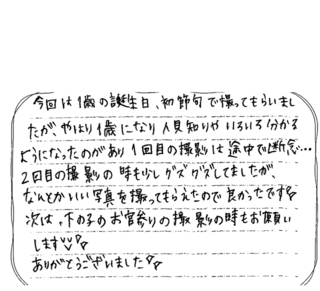 今回は1歳の誕生日、初節句で撮ってもらいまし
たが、やはり1歳になり人見知りやいろいろ分かる
ようになったのがあり1回目の撮影は途中で断念…
2回目の撮影の時も少しグズグズしてましたが、
なんとかいい写真を撮ってもらえたので良かったです
次は、下の子のお宮参りの撮影の時もお願い
します
ありがとうございました